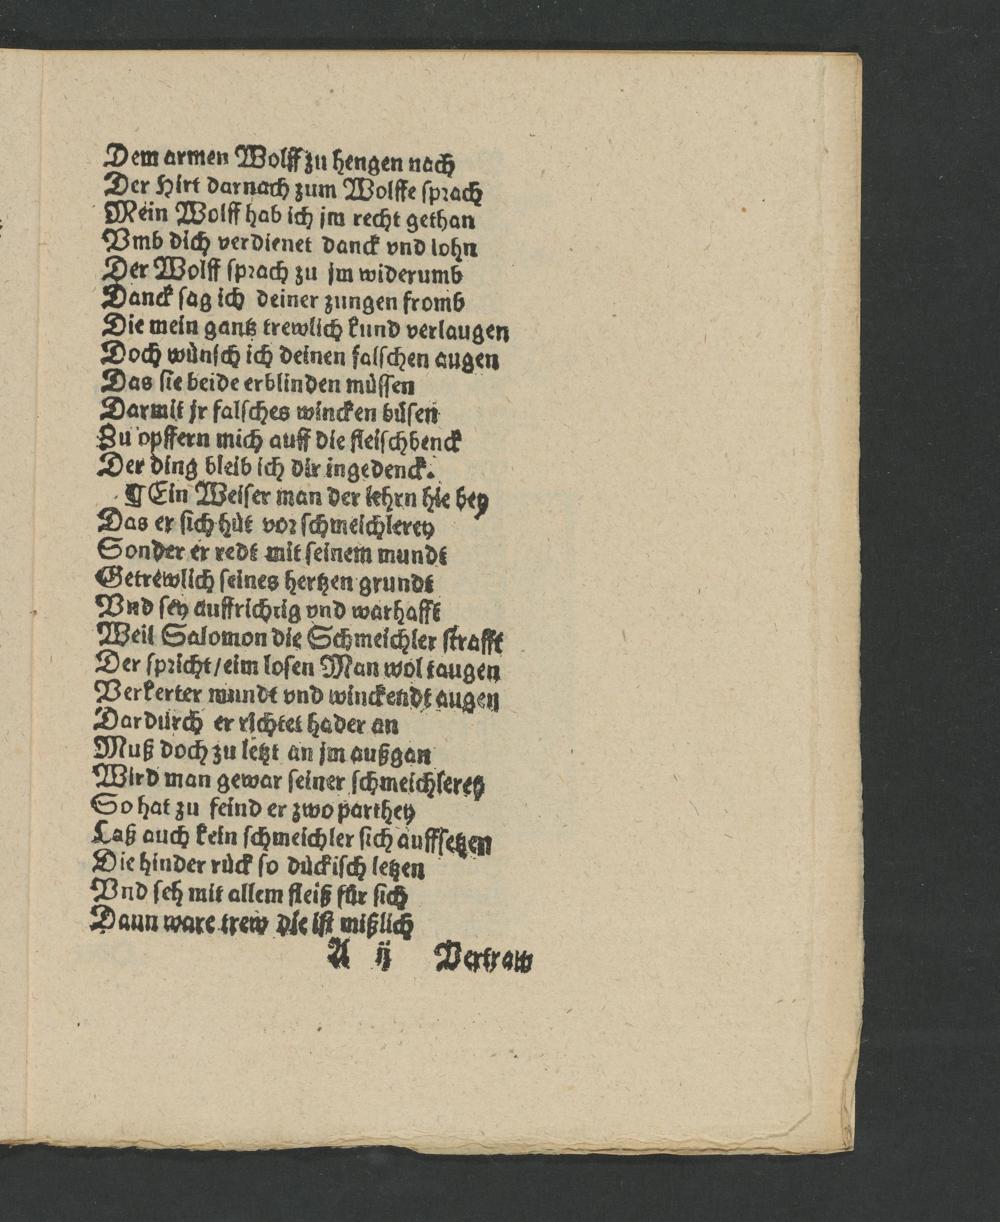 Dem armen Wolff zu hengen nach
Der Hirt darnach zum Wolffe sprach
Mein Wolff hab ich jm recht gethan
Vmb dich verdienet danck vnd lohn
Der Wolff sprach zu jm widerumb
Danck sag ich deiner zungen fromb
Die mein gantz trewlich kund verlaugen
Doch wünsch ich deinen falschen augen
Das sie beide erblinden müssen
Darmit jr falsches wincken büsen
Zu opffern mich auff die fleischbenck
Der ding bleib ich dir ingedenck.
¶ Ein Weiser man der lehrn hie bey
Das er sich hüt vor schmeichlerey
Sonder er redt mit seinem mundt
Getrewlich seines hertzen grundt
Vnd sey auffrichtig vnd warhafft
Weil Salomon die Schmeichler strafft
Der spricht / eim losen Man wol taugen
Verkerter mundt vnd winckendt augen
Dardurch er richtet hader an
Muß doch zu letzt an jm außgan
Wird man gewar seiner schmeichlerey
So hat zu feind er zwo parthey
Laß auch kein schmeichler sich auffsetzen
Die hinder rück so dückisch letzen
Vnd seh mit allem fleiß für sich
Dann ware trew die ist mißlich
A ij Vertraw